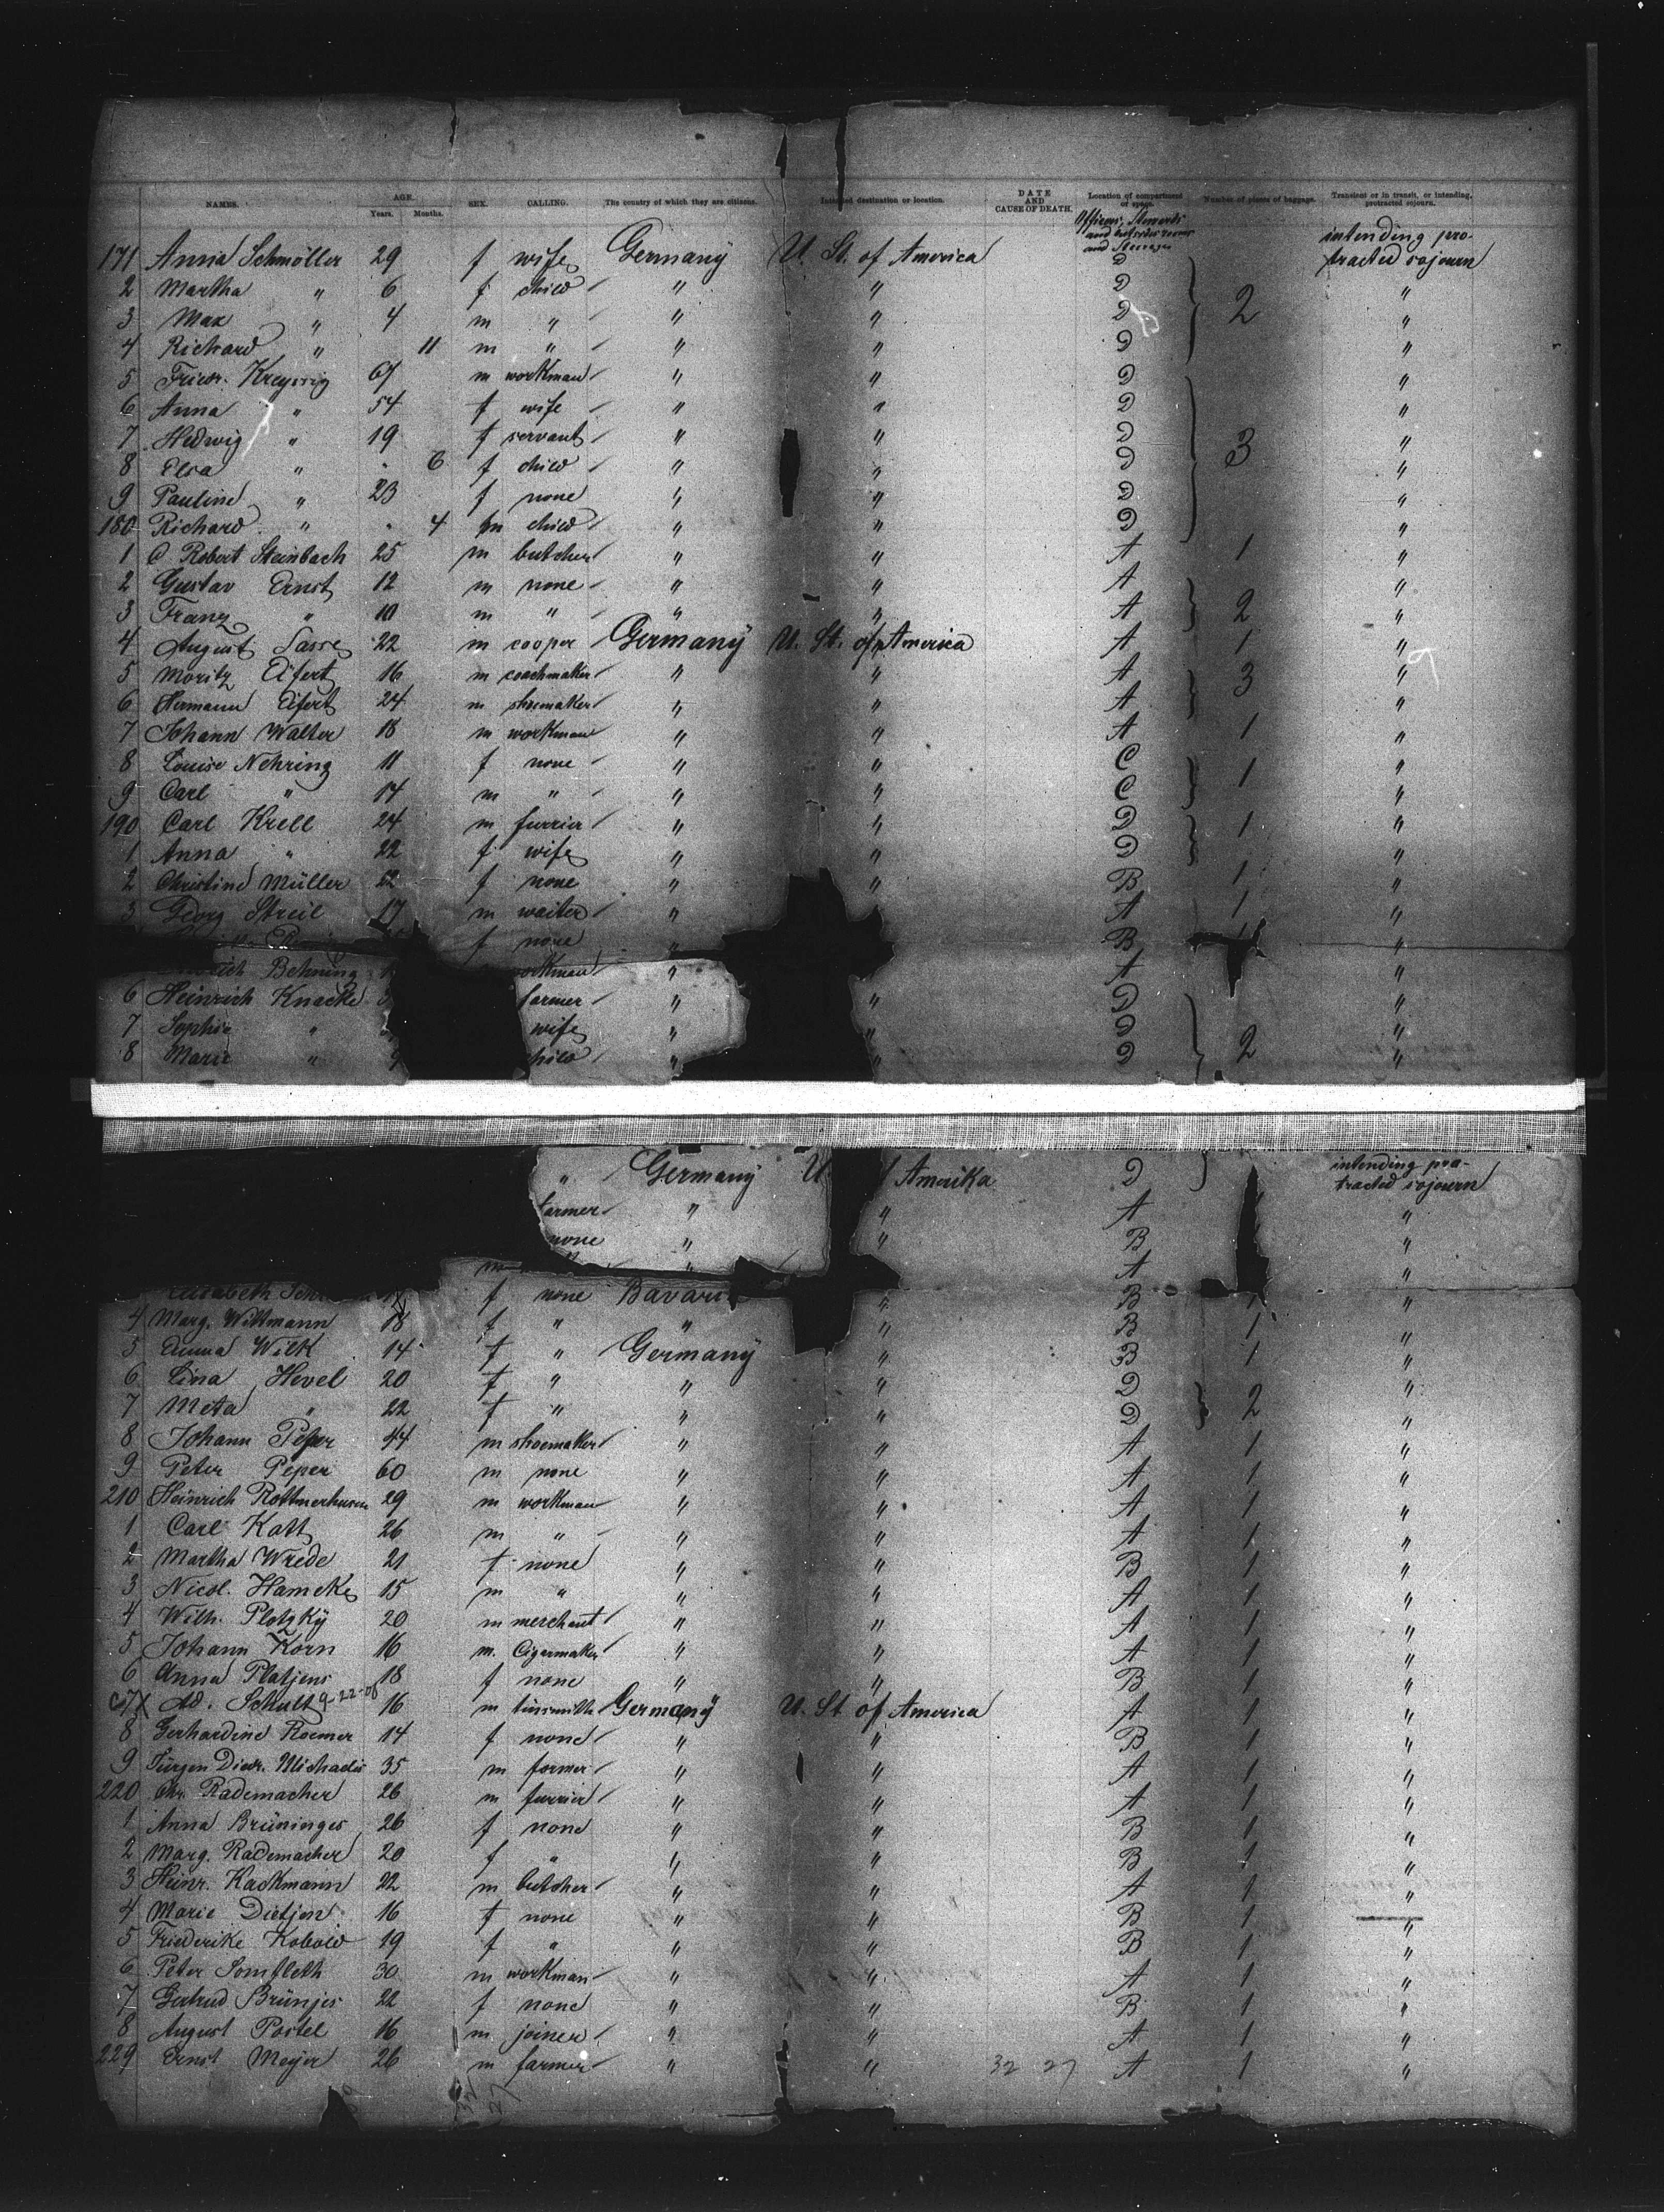 NAMES. AGE. Years. Months. SEX. CALLING. The country of which they are citizens. Intended destination or location. DATE AND CAUSE OF DEATH. Location of compartment or space. Number of pieces of baggage. Transient or in transit, or intending, protracted sojourn.
Officers, Stewards and and Steerage
intending pro-
171 Anna Schmöller 29 f wife Germany U. St. of America D tracted sojourn
2 Martha " 6 f child " " D "
3 Max " 4 m " " " D 2 "
4 Richard " 11 m " " " D "
5 Friedr. Kreyssig 67 m workman " " D "
6 Anna " 54 f wife " " D "
7 Hedwig " 19 f servant " " D 3 "
8 Elsa " " 6 f child " " D "
9 Pauline " 23 f none " " D "
180 Richard " " 4 m child " " D "
1 C Robert Steinbach 25 m butcher " " A 1 "
2 Gustav Ernst 12 m none " " A "
3 Franz " 10 m " " " A 2 "
4 August Sasse 22 m cooper Germany U. St. of America A 1 "
5 Moritz Eifert 16 m coachmaker " " A 3 "
6 Hermann Eifert 24 m shoemaker " " A "
7 Johann Walter 18 m workman " " A 1 "
8 Louise Nehring 11 f none " " C 1 "
9 Carl " 14 m " " " C "
190 Carl Krell 24 m furrier " " D 1 "
1 Anna " 22 f wife " " D "
2 Christine Müller 22 f none " " B 1 "
3 Georg Streil 17 m waiter " " A 1 "
f none " B "
Behning workman " A "
6 Heinrich Knacke farmer " " D "
7 Sophie " wife " " D "
8 Marie " 9 child " " D 2 "
intending pro-
" Germany U Amerika D tracted sojourn
farmer " " A "
none " " B "
m " A "
Elisabeth f none Bavaria " B 1 "
4 Marg. Wittmann 18 f " " " B 1 "
5 Emma Wilk 14 f " Germany " B 1 "
6 Lina Hevel 20 f " " " D "
7 Meta " 22 f " " " D 2 "
8 Johann Peper 44 m shoemaker " " A 1 "
9 Peter Peper 60 m none " " A 1 "
210 Heinrich Rottmerhusen 29 m workman " " A 1 "
1 Carl Katt 26 m " " " A 1 "
2 Martha Wrede 21 f none " " B 1 "
3 Nicol. Hamcke 15 m " " " A 1 "
4 Wilh. Plotzky 20 m merchant " " A 1 "
5 Johann Korn 16 m. Cigarmaker " " A 1 "
6 Anna Platjens 18 f none " " B 1 "
7 Ad. Schult 9-22-08 16 m tinsmith Germany U. St of America A 1 "
8 Gerhardine Roemer 14 f none " " B 1 "
9 Jürgen Diedr. Michaelis 35 m farmer " " A 1 "
220 Chr. Rademacher 26 m furrier " " A 1 "
1 Anna Brüninges 26 f none " " B 1 "
2 Marg. Rademacher 20 f " " " B 1 "
3 Heinr. Kackmann 22 m butcher " " A 1 "
4 Marie Dietjen 16 f none " " B 1 "
5 Friederike Kobold 19 f " " " B 1 "
6 Peter Somfleth 30 m workman " " A 1 "
7 Gertrud Brünjes 22 f none " " B 1 "
8 August Postel 16 m joiner " " A 1 "
229 Ernst Meyer 26 m farmer " " 32 27 A 1 "
32
27